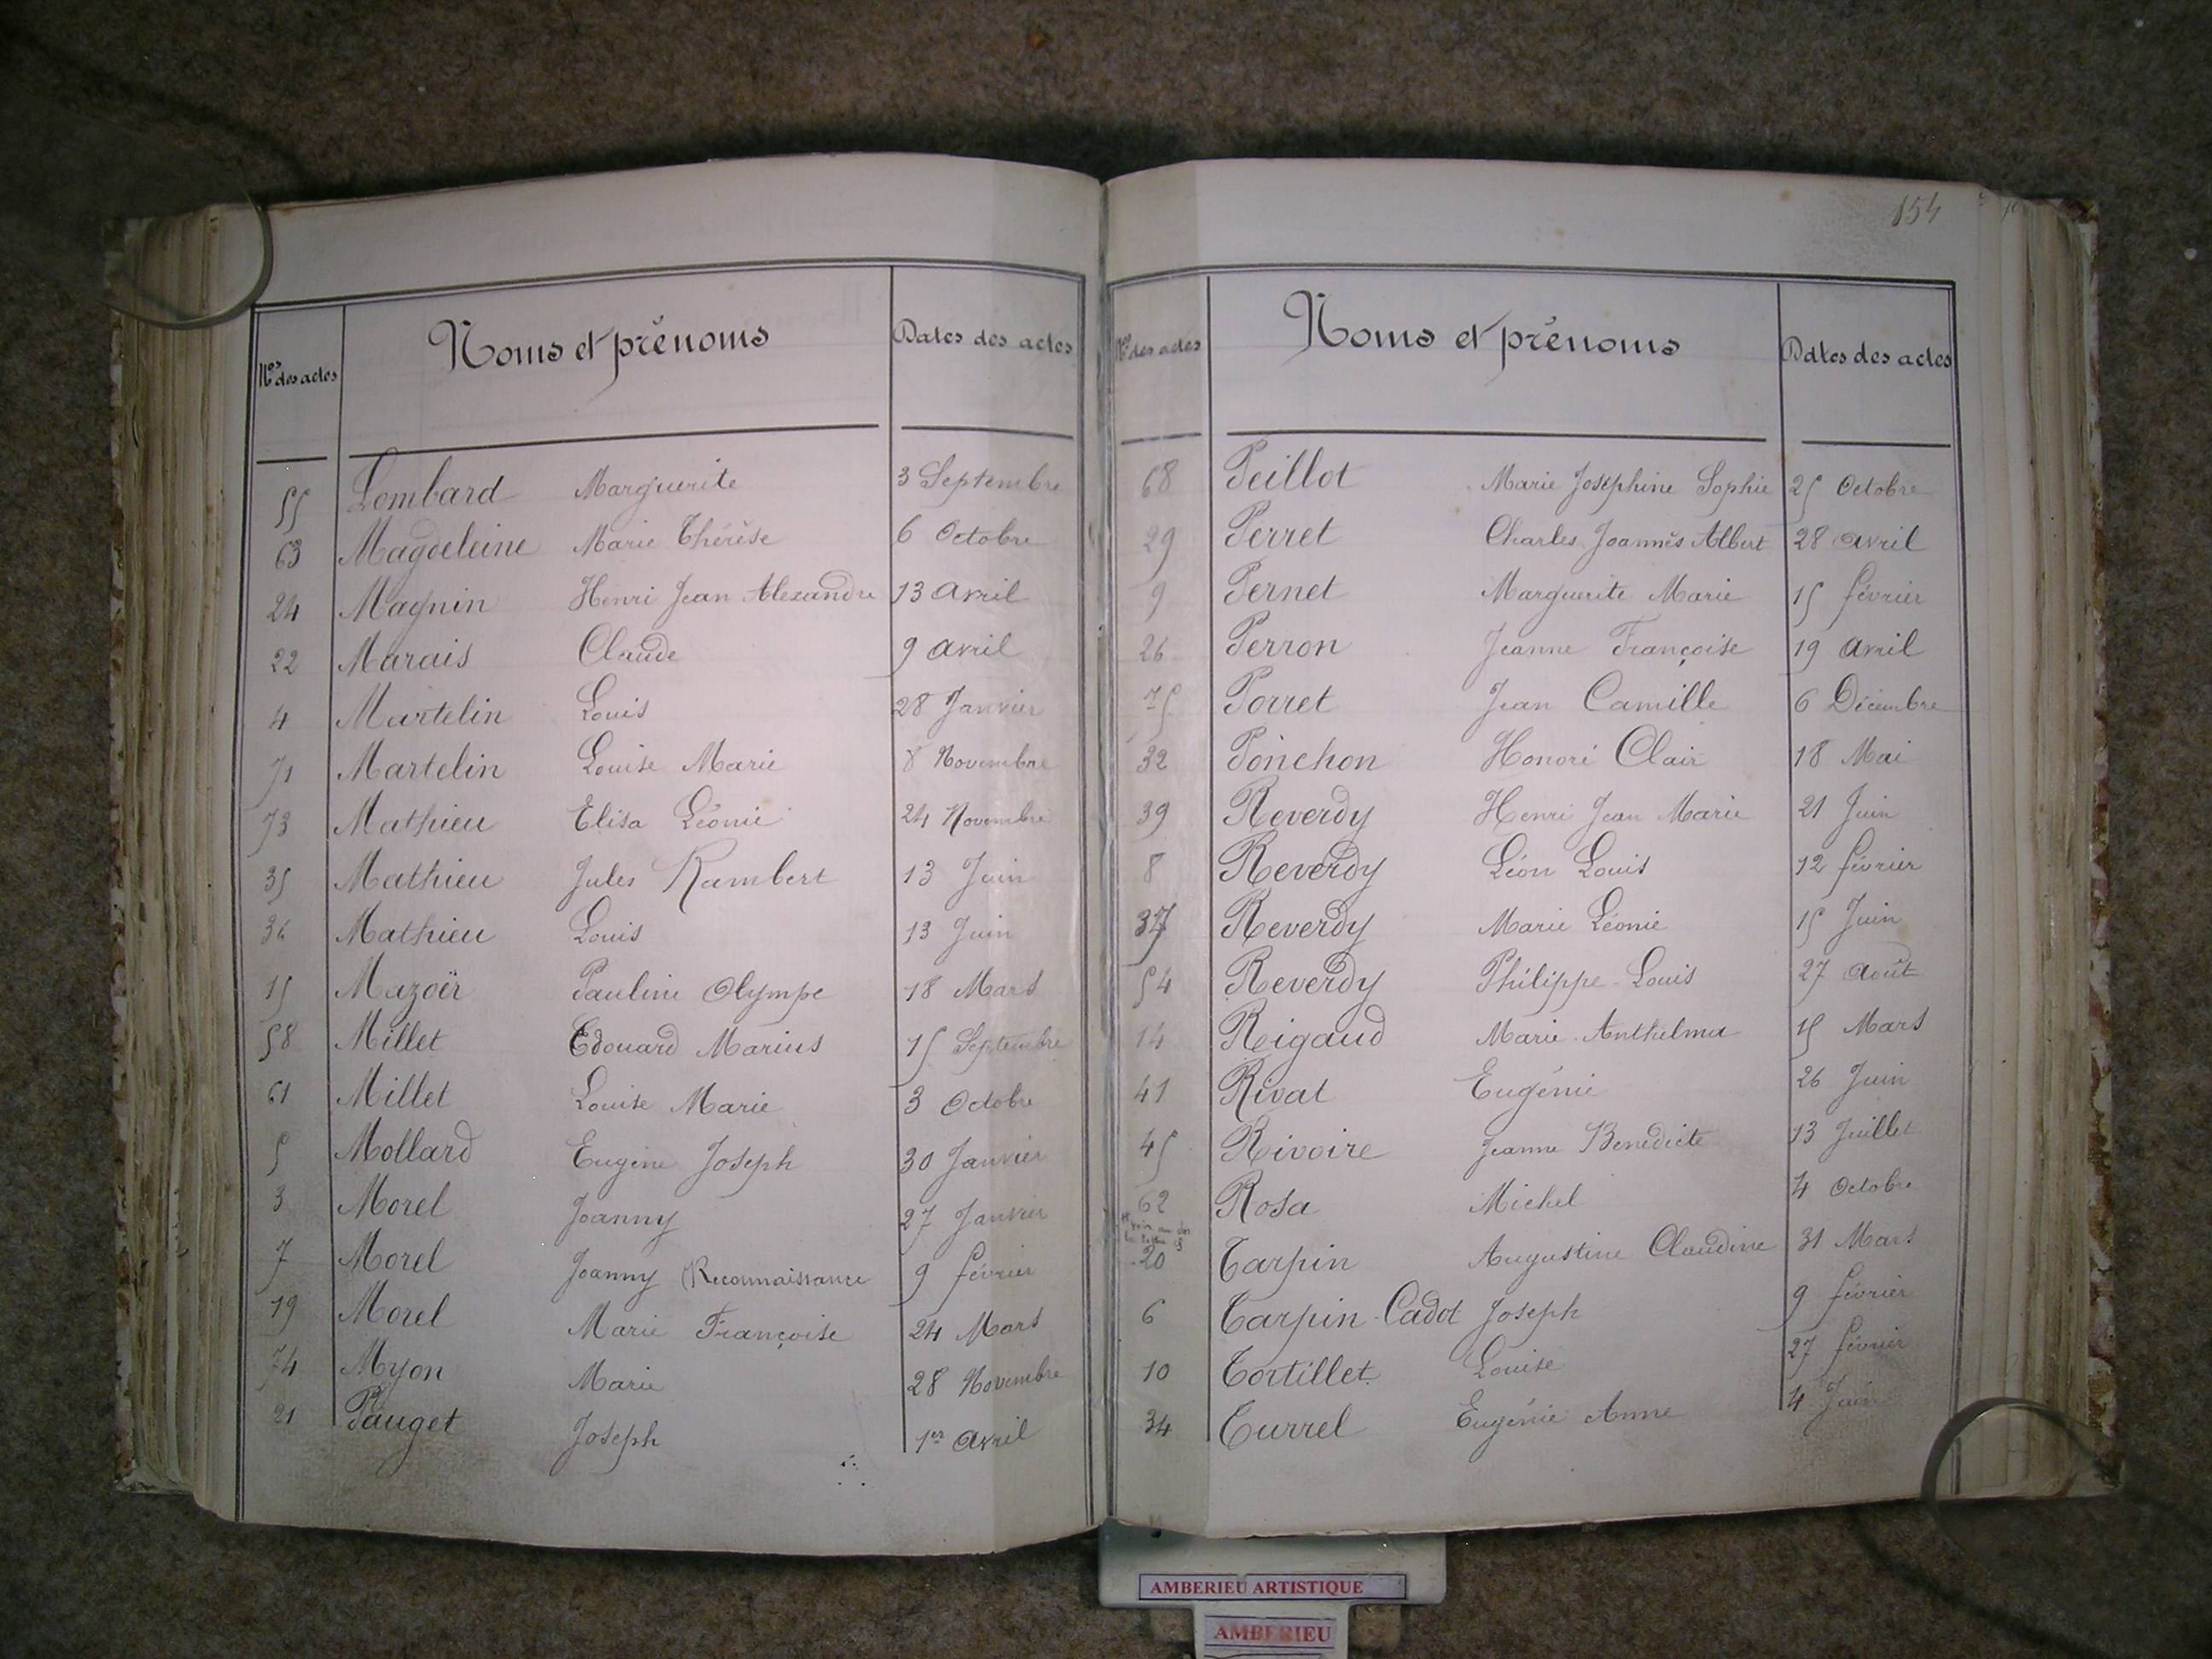 154
Nos des actes Noms et prénoms Dates des actes
55 Lombard Marguerite 3 Septembre
63 Magdeleine Marie Thérèse 6 Octobre
24 Magnin Henri Jean Alexandre 13 avril
22 Marais Claude 9 avril
4 Martelin Louis 28 Janvier
71 Martelin Louise Marie 8 Novembre
73 Mathieu Elisa Léonie 24 Novembre
35 Mathieu Jules Rambert 13 Juin
36 Mathieu Louis 13 Juin
15 Mazoër Pauline Olympe 18 Mars
58 Millet Edouard Marius 15 Septembre
61 Millet Louise Marie 3 Octobre
5 Mollard Eugène Joseph 30 Janvier
3 Morel Joanny 27 Janvier
7 Morel Joanny (Reconnaissance 9 février
19 Morel Marie Françoise 24 Mars
74 Myon Marie 28 Novembre
21 Pauget Joseph 1er avril
Nos des actes Noms et prénoms Dates des actes
68 Peillot Marie Joséphine Sophie 25 Octobre
29 Perret Charles Joannès Albert 28 avril
9 Pernet Marguerite Marie 15 février
26 Perron Jeanne Françoise 19 avril
75 Porret Jean Camille 6 Décembre
32 Poinchon Honoré Clair 18 Mai
39 Reverdy Henri Jean Marie 21 Juin
8 Reverdy Léon Louis 12 février
37 Reverdy Marie Léonie 15 Juin
54 Reverdy Philippe-Louis 27 août
14 Rigaud Marie-Anthelme 15 Mars
41 Rivat Eugénie 26 Juin
45 Rivoire Jeanne Benedicte 13 Juillet
62 Rosa Michel 4 Octobre
voir au dos la lettre S
20 Tarpin Augustine Claudine 31 Mars
6 Tarpin-Cadot Joseph 9 février
10 Tortillet Louise 27 février
34 Turrel Eugénie Anne 4 Juin
AMBERIEU ARTISTIQUE
AMBERIEU